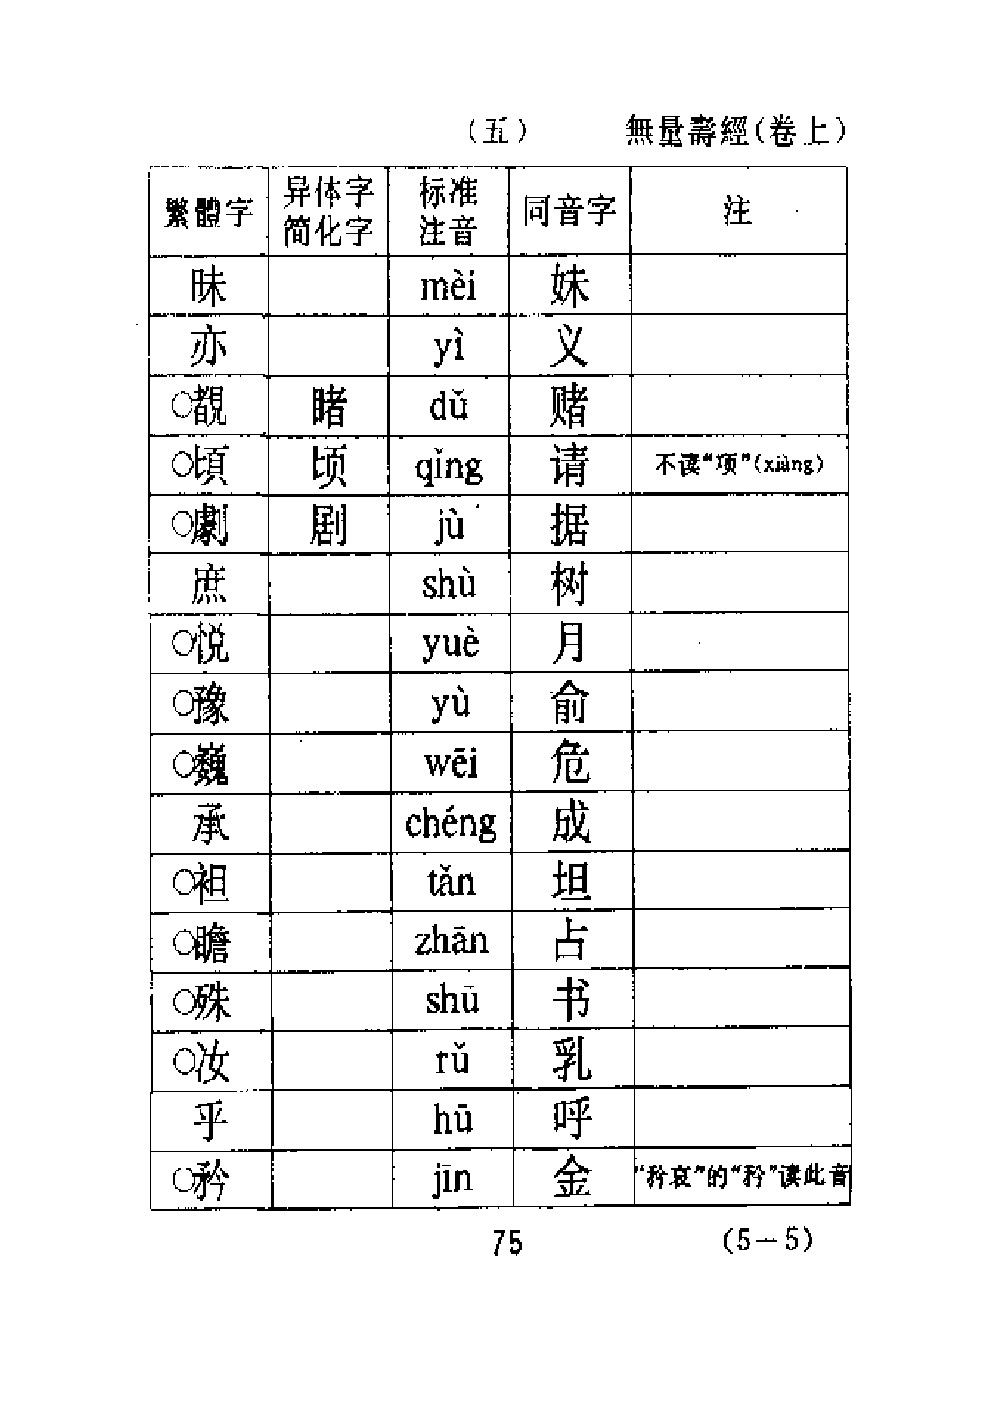 (五) 無量壽經(卷上)
繁體字 异体字简化字 标准注音 同音字 注
昧 mèi 妹
亦 yì 义
○覩 睹 dǔ 赌
○頃 顷 qǐng 请 不读“项”(xiàng)
○劇 剧 jù 据
庶 shù 树
○悦 yuè 月
○豫 yù 俞
○巍 wēi 危
承 chéng 成
○袒 tǎn 坦
○瞻 zhān 占
○殊 shū 书
○汝 rǔ 乳
乎 hū 呼
○矜 jīn 金 “矜哀”的“矜”读此音
75 (5-5)